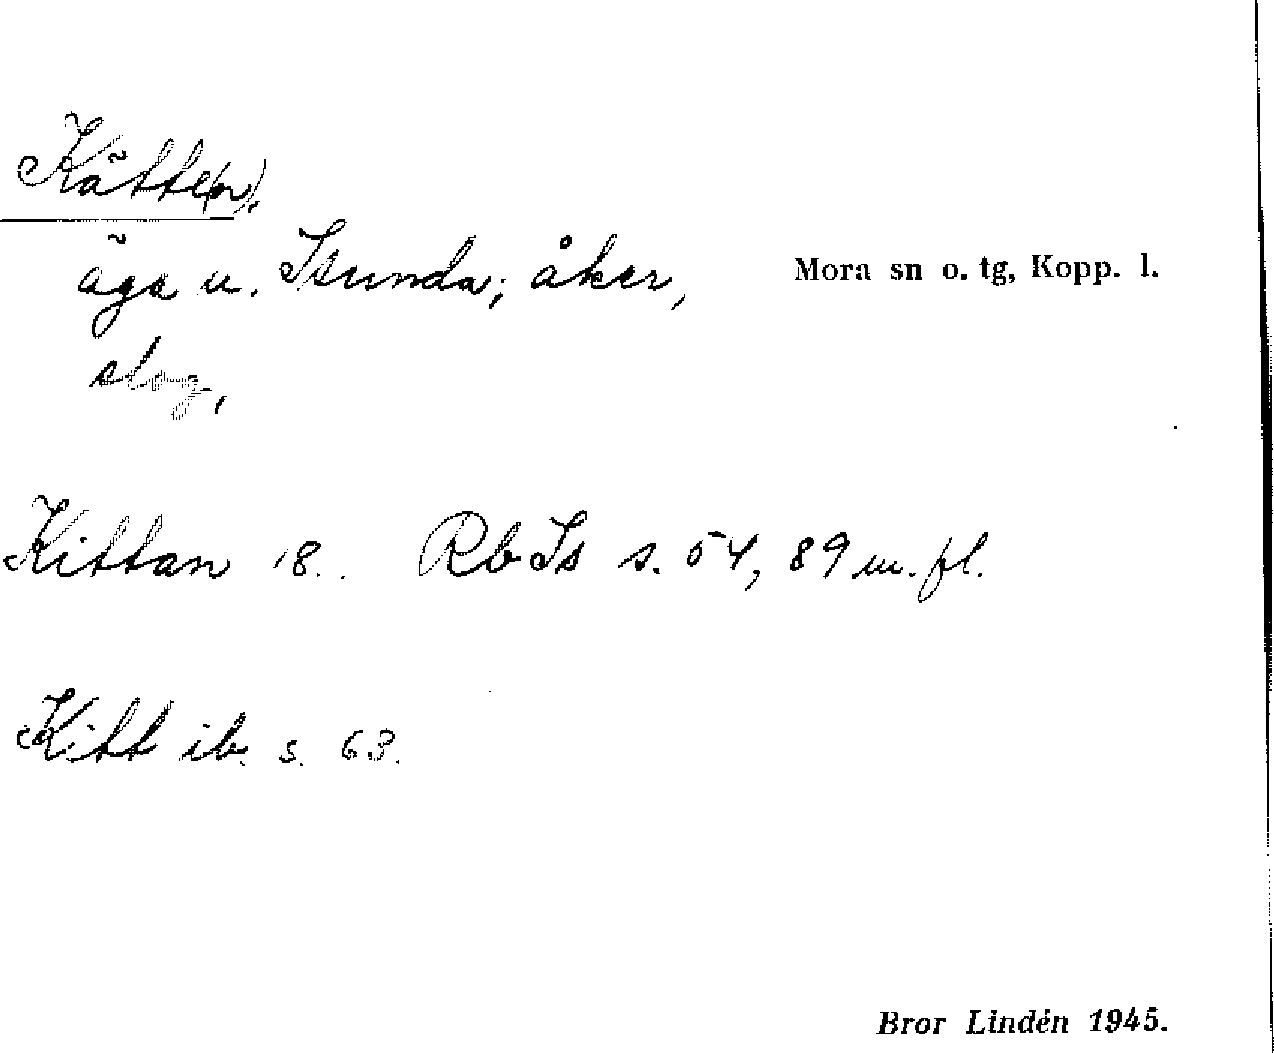 Kätte(n),
äga u. Isunda; åker,
Mora sn o. tg, Kopp. l.
slog,
Kittan 18.. Rb Is s. 54, 89 m. fl.
Kitt ib. s. 63.
Bror Lindén 1945.